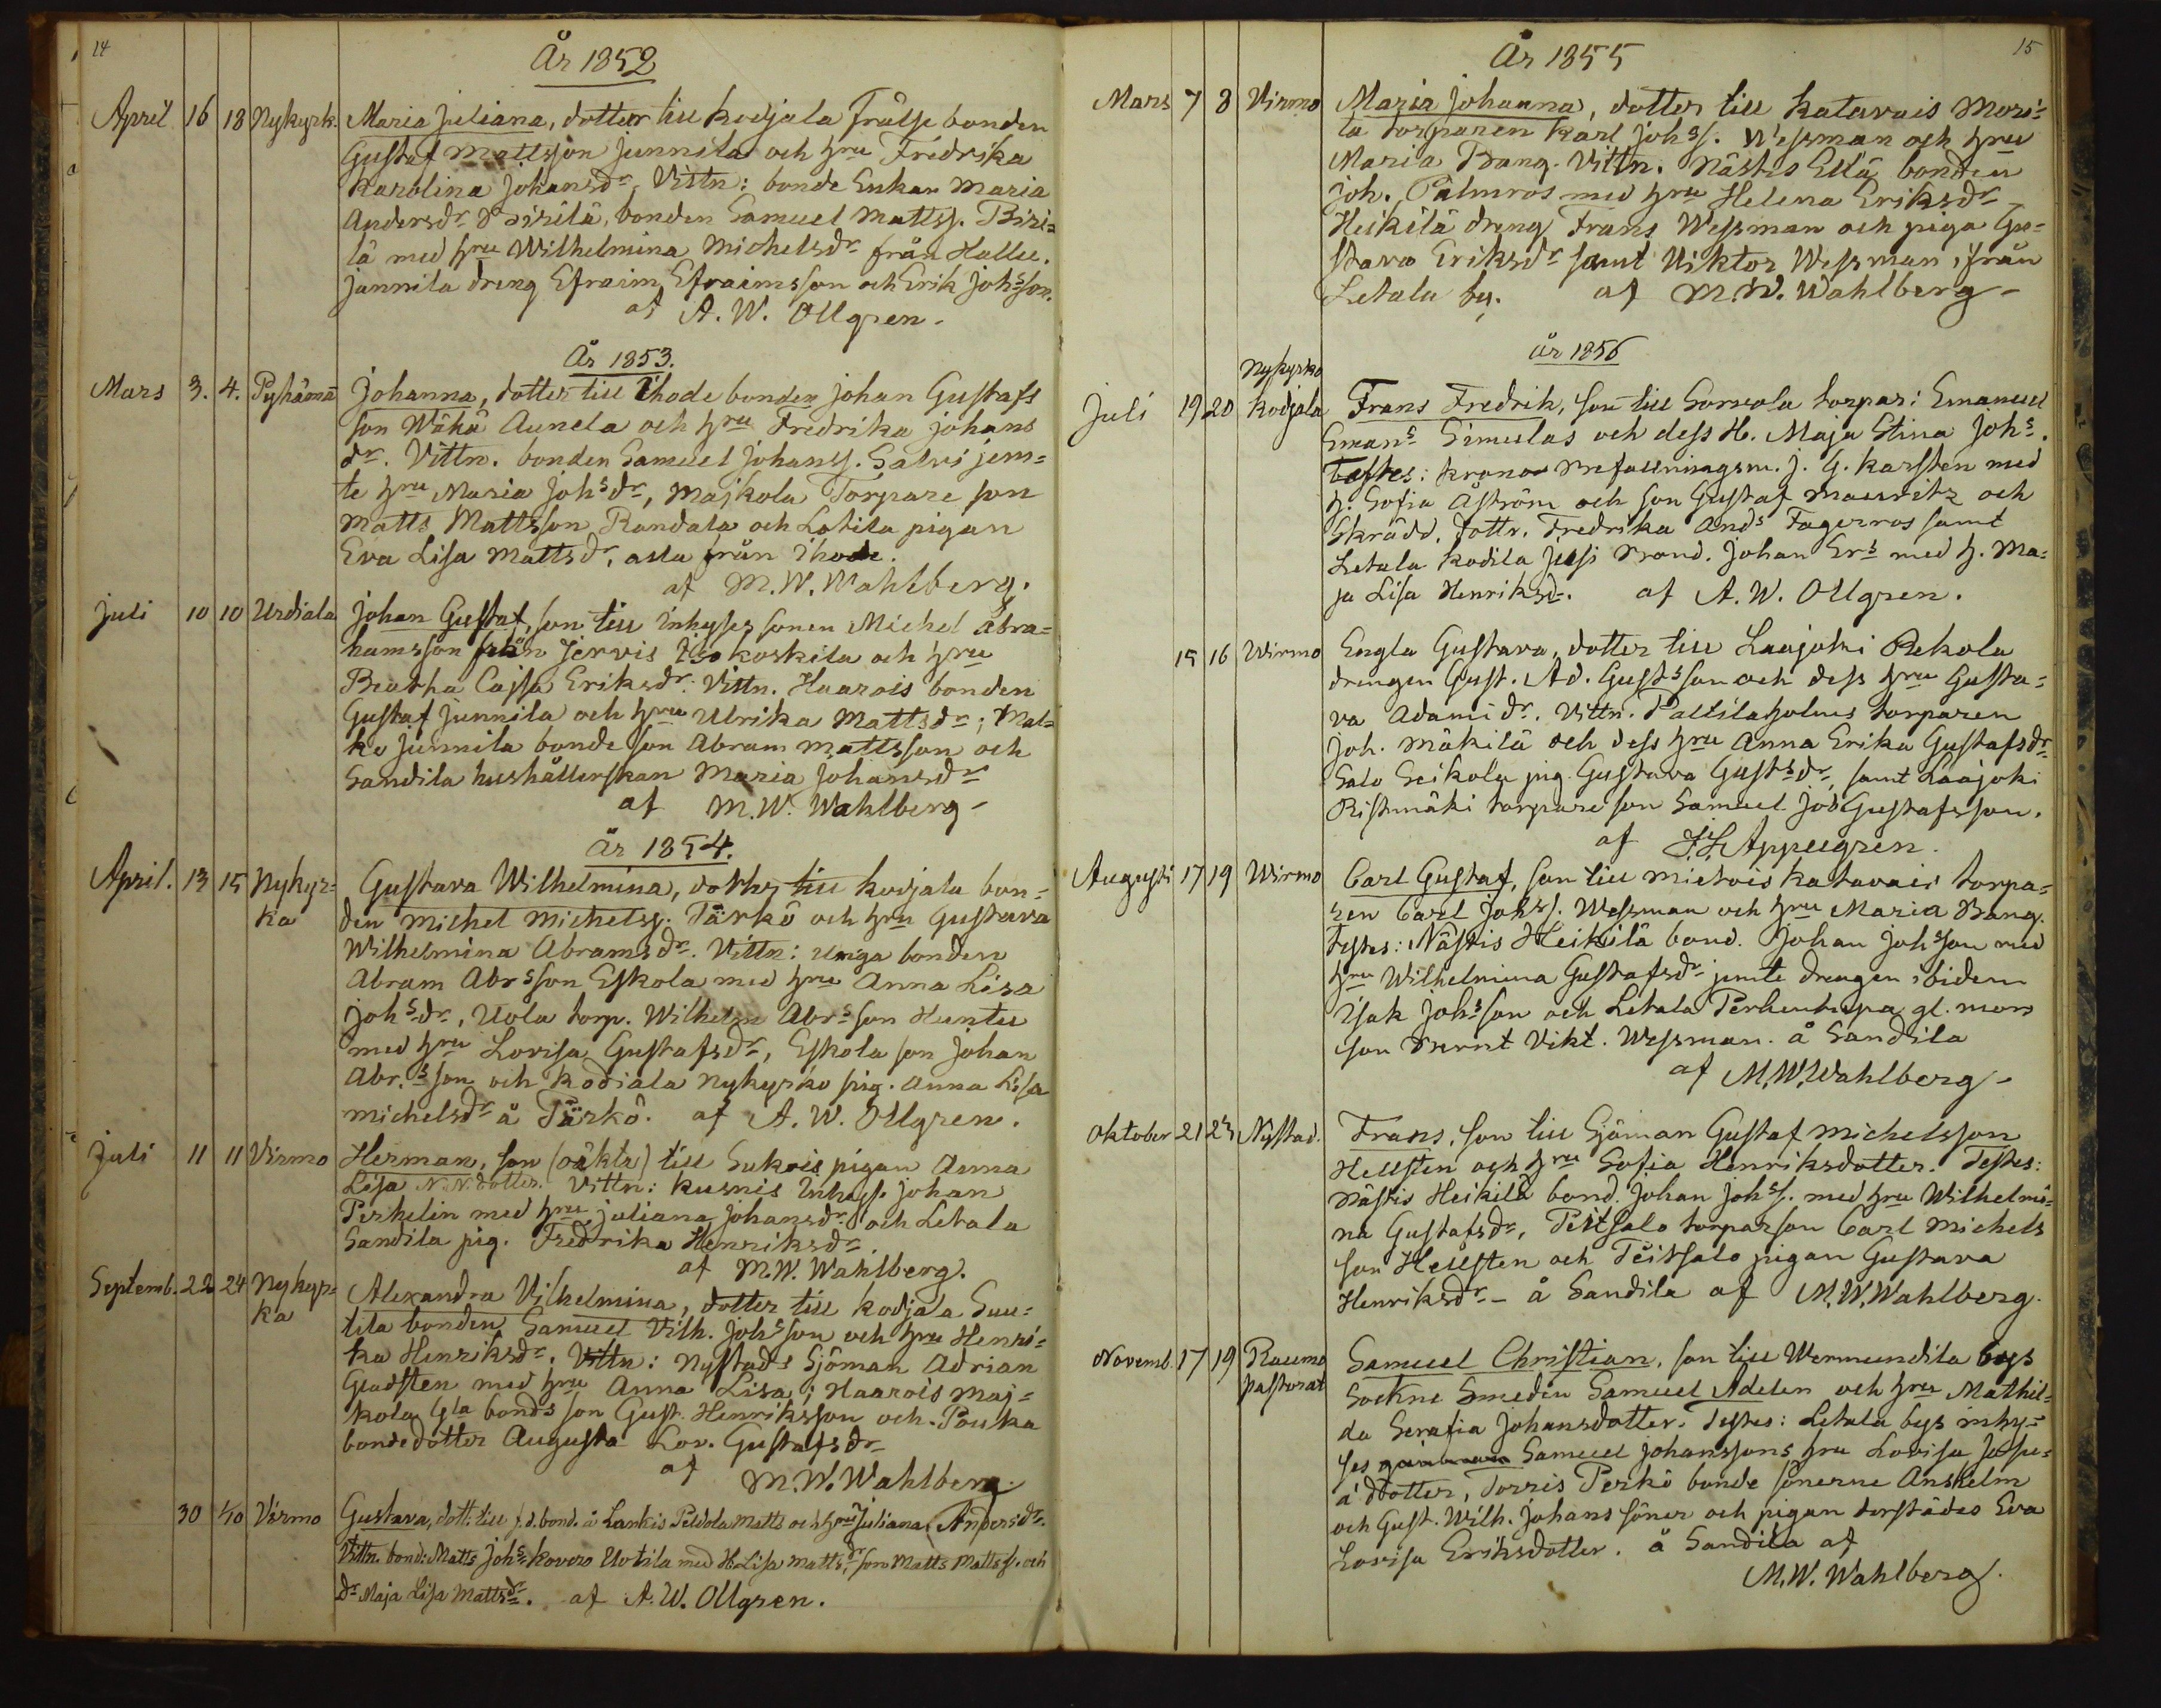 14
År 1852
April 16 18 Nykyrk. Maria Juliana, dotter till Kodjala frälse bonden
Gustaf Mattsson Junnila och hru Fredrika
Karolina Johansdr. Vittn: bonde Enkan Maria
Andersdr Pirilä, bonden Samuel Mattss. Piri=
lä med hru Wilhelmina Michelsdr från Hallu.
Junnila dreng Efraim Efraimsson och Erik Johsson.
af A. W. Ollgren.
År 1853.
Mars 3. 4. Pyhämä Johanna, dotter till Ihode bonden Johan Gustafs
son Wähä Aunela och hru Fredrika Johans
dr. Vittn. bonden Samuel Johanss. Salvi jem=
te hru Maria Johsdr, Majkola Torpare son
Matts Mattsson, Randala och Lotila pigan
Eva Lisa Mattsdr, alla från Ihode.
af M. W. Wahlberg.
Juli 10 10 Urdiala Johan Gustaf, son till Inhyses sonen Michel Abra=
hamsson från Jervis Isokoskila och hru
Beatha Cajsa Eriksdr. Vittn. Haarois bonden
Gustaf Junnila och hru Ulrika Mattsdr; Mal=
ko Junnila bonde son Abram Mattsson och
Sandila hushållerskan Maria Johansdr
af M. W. Wahlberg -
År 1854.
April. 13 15 Nykyr= Gustava Wilhelmina, dotter till Kodjala bon=
ka den Michel Michelss. Tärkö och hru Gustava
Wilhelmina Abramsdr. Vittn: unga bonden
Abram Abrsson Eskola med hru Anna Lisa
Johsdr, Uola torp. Wilhelm Abrsson Huntu
med hru Lovisa Gustafsdr, Eskola son Johan
Abr.sson och Kodiala Nykyrko pig. Anna Lisa
Michelsdr å Tärkö. af A. W. Ollgren.
Juli 11 11 Virmo Herman, son (oäkta) till Sukois pigan Anna
Lisa N.N.dotter. Vittn: Kusnis Inhyss. Johan
Perkelin med hru Juliana Johansdr och Letala
Sandila pig. Fredrika Henriksdr.
af M. W. Wahlberg.
Septemb. 22 24 Nykyr= Alexandra Vilhelmina, dotter till Kodjala Suu=
ka tila bonden Samuel Vilh. Johsson och hru Henri=
ka Henriksdr. Vittn: Nystads Sjöman Adrian
Gladsten med hru Anna Lisa; Haarois Maj=
kola Gla bonds son Gust. Henriksson och Pouka
bondedotter Augusta Lov. Gustafsdr
af M. W. Wahlberg
30 1/10 Virmo Gustava, dott. till f.d. bond. å Lankis Peldola Matts och hru Juliana Andersdr.
Vittn. bond: Matts Johs Kovero Uotila med H. Lisa Mattsdr, son Matts Mattss. och
dr Maja Lisa Mattsdr. af A. W. Ollgren.
15
År 1855
Mars 7 8 Virmo Maria Johanna, dotter till Katavais Mori=
la torparen Karl Johss. Wessman och hru
Maria Brang. Vittn. Nästis Ellä bonden
Joh. Palmros med hru Helena Eriksdr
Heikilä dreng Frans Wessman och piga Gu=
stava Eriksdr samt Viktor Wessman, från
Letala by. af M. W. Wahlberg -
År 1856
Nykyrko
Juli 19 20 Kodjala Frans Fredrik, son till Sorvola torpar: Emanuel
Emans Simulas och dess H. Maja Stina Johs.
Testes: krono J. G. Karsten med
h. Sofia Åström och son Gustaf Mauritz och
Skrädd. dottr. Fredrika Ands Fagerros samt
Letala Kodila Jussi Johan Ers med h. Ma=
ja Lisa Henriksd. af A. W. Ollgren.
15 16 Wirmo Engla Gustava, dotter till Laajoki Rekola
drengen Gust. Ad. Gustsson och dess hru Gusta=
va Adamidr. Vittn. Paltilaholms torparen
Joh. Mäkilä och dess hru Anna Erika Gustafsdr
Salo Seikola pig. Gustava Gustsdr, samt Laajoki
Ristimäki torpare son Samuel Job Gustafsson.
af Appelgren.
Augusti 17 19 Wirmo Carl Gustaf, son till Mietois Katavais torpa=
ren Carl Johss. Wessman och hru Maria Brang.
Testes: Nästis Heikilä bond. Johan Johsson med
hru Wilhelmina Gustafsdr jemte drengen ibidem
Isak Johsson och Letala gl. mors
son Vikt. Wessman. å Sandila
af M. W. Wahlberg -
Oktober 21 23 Nystad. Frans, son till Sjöman Gustaf Michelsson
Hellsten och hru Sofia Henriksdotter. Testes:
Nästis Heikilä bond. Johan Johss. med hru Wilhelmi=
na Gustafsdr, Teitsalo torparson Carl Michels
son Hellsten och Teitsalo pigan Gustava
Henriksdr - å Sandila af M. W. Wahlberg.
Novemb. 17 19 Raumo Samuel Christian, son till Wermundila bys
pastorat Sockne Smeden Samuel Adelen och hru Mathil=
da Serafia Johansdotter. Testes: Letala bys inhy=
ses Samuel Johanssons hru Lovisa Josu=
ä dotter, Torris Perkö bonde sönerne Anshelm
och Gust. Wilh. Johans söner och pigan derstädes Eva
Lovisa Eriksdotter. å Sandila af
M. W. Wahlberg.